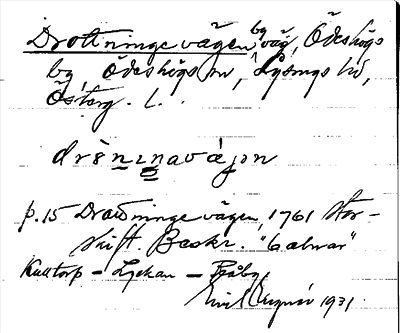 Drottningevägen, by väg, Ödeshögs
by, Ödeshögs sn, Lysings hd,
Österg. l.
p. 15 Drottningevägen, 1761 Stor-
skift. Beskr. "6 alnar"
Kulltorp – Lyckan – Bråby.
Emil 1931.